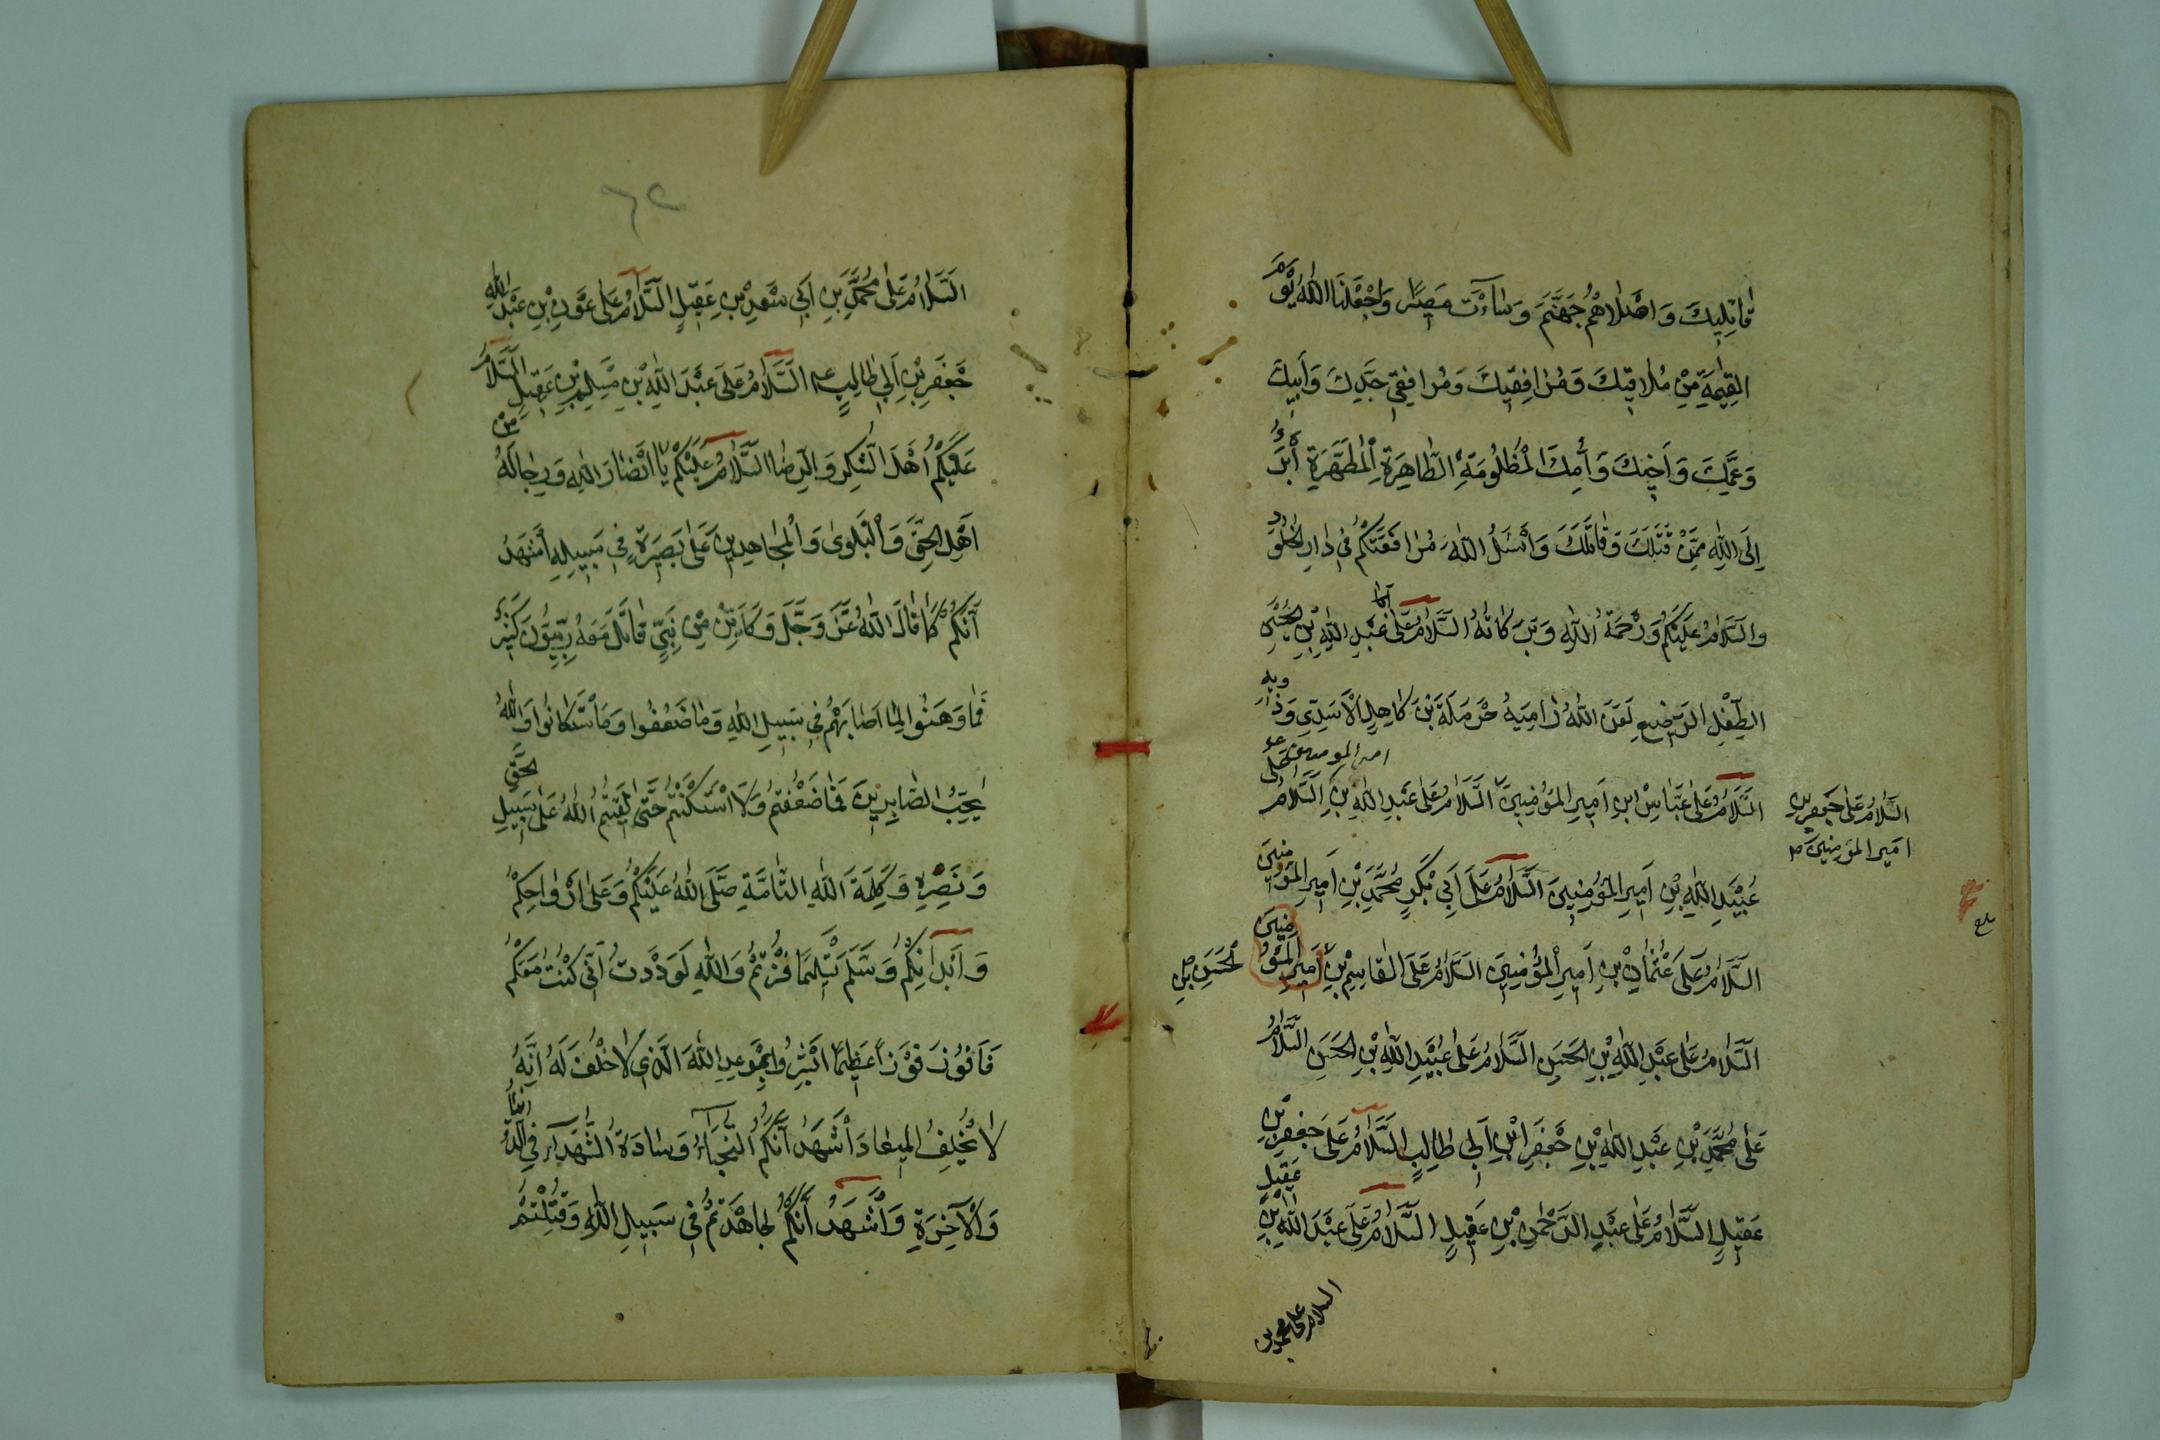 قاتِلِيكَ وَاَصْلاهُمْ جَهَنَّمَ وَسٰاۤءَتْ مَصِيرًا وَاجْعَلْنَا اللّٰهُ يَوْمَ
القِيٰمَةِ مِنْ مُلاقِيكَ وَمُرٰافِقيكَ وَمُرٰافِقِي جَدِّكَ وَاَبِيكَ
وَعَمِّكَ وَاَخِيكَ وَاُمِّكَ الْمَظْلُومَةِ الطّاهِرَةِ الْمُطَهَّرَةِ أَبْرَءُ
اِلَى اللّٰهِ مِمَّنْ قَتَلَكَ وَقٰاتَلَكَ وَأَسْئَلُ اللّٰهَ مُرٰافَقَتَكُمْ فِي دٰارِ الْخُلُودِ
وَالسَّلٰامُ عَلَيْكُمْ وَرَحْمَةُ اللّٰهِ وَبَرَكاتُهُ السَّلٰامُ عَلٰى عَبْدِ اللّٰهِ بْنِ الْحُسَيْنِ
الطِّفْلِ الرَّضِيعِ لَعَنَ اللّٰهُ رٰامِيَهُ حَرْمَلَةَ بْنَ كاهِلِ الْاَسَدِيّ وَذَوِيهِ
السَّلٰامُ عَلٰى عَبّاسِ ابْنِ اَمِيرِ المُؤمِنِينَ السَّلٰامُ عَلٰى عَبْدِ اللّٰهِ بْنِ امير المومنين السَّلٰامُ عَلٰى
السَّلٰامُ عَلٰى جَعفر بن
امير المؤمنين صح
عُبَيْدِ اللّٰهِ بْنِ اَمِيرِ المُؤْمِنِينَ السَّلٰامُ عَلَى اَبِي بَكْرٍ مُحَمَّدِ بْنِ اَمِيرِ المُؤمِنِينَ
السَّلٰامُ عَلَى عُثْمٰانَ بْنِ اَمِيرِ الْمُؤْمِنِينَ السَّلٰامُ عَلَى القاسِمِ بْنِ أَمِيرِ الْمُؤْمِنِينَ
الْحَسَنِ صح
السَّلٰامُ عَلٰى عَبْدِ اللّٰهِ بْنِ الحَسَنِ السَّلٰامُ عَلٰى عُبَيْدِ اللّٰهِ بْنِ الحَسَنِ السَّلٰامُ
عَلٰى مُحَمَّدِ بْنِ عَبْدِ اللّٰهِ بْنِ جَعْفَرِ ابْنِ اَبِي طالِبٍ السَّلٰامُ عَلَى جَعفر بْنِ
عَقِيلٍ السَّلٰامُ عَلٰى عَبْدِ الرَّحْمٰنِ بْنِ عَقِيلٍ السَّلٰامُ عَلَى عَبْدَ اللّٰهِ بْنِ عَقِيلٍ
السلام على محمد بن
٦٢
السَّلٰامُ عَلٰى مُحَمَّدِ بْنِ اَبِي سَعْدِ بْنِ عَقِيلٍ السَّلٰامُ عَلٰى عَوْنِ بْنِ عَبْدِ اللّٰهِ
جَعْفَرِ بْنِ اَبِي طٰالِبٍ السَّلٰامُ عَلَى عَبْدَ اللّٰهِ بْنِ مُسْلِمِ بْنِ عَقِيلٍ السَّلٰامُ
عَلَيْكُمْ اَهْلَ الشُّكْرِ وَالرِّضٰا السَّلٰامُ عَلَيْكُمْ يٰا اَنْصٰارَ اللّٰهِ وَرِجٰالَهُ مِنْ
اَهْلِ الحَقِّ وَالْبَلْوٰى وَالْمُجٰاهِدِينَ عَلٰى بَصِيرَةٍ فِي سَبِيلِهِ أَشْهَدُ
أَنَّكُمْ كَمٰا قٰالَ اللّٰهُ عَزَّ وَجَلَّ وَكَاَيِّنْ مِنْ نَبِيٍّ قٰاتَلَ مَعَهُ رِبِّيُّونَ كَثِيرٌ
فَمٰا وَهَنُوا لِمٰا اَصٰابَهُمْ فِي سَبِيلِ اللّٰهِ وَمٰا ضَعُفُوا وَمَا اسْتَكانُوا وَاللّٰهُ
يُحِبُّ الصّٰابِرِينَ فَمٰا ضَعُفْتُمْ وَلَا اسْتَكَنْتُمْ حَتّٰى لَقِيتُمُ اللّٰهَ عَلٰى سَبِيلِ الحَقِّ
وَنَصْرِهِ وَكَلِمَةِ اللّٰهِ التّٰامَّةِ صَلَّى اللّٰهُ عَلَيْكُمْ وَعَلٰى اَرْوٰاحِكُمْ
وَاَبْدٰانِكُمْ وَسَلَّمَ تَسْلِيمًا فُزْتُمْ وَاللّٰهِ لَوَدَدْتُ اَنِّي كُنْتُ مَعَكُمْ
فَاَفُوزَ فَوْزًا عَظِيمًا اَبْشِرُوا بِمَوْعِدِ اللّٰهِ الَّذِي لا خُلْفَ لَهُ اِنَّهُ
لٰا يُخْلِفُ المِيعٰادَ أَشْهَدُ أَنَّكُمُ النُّجَبٰاۤءُ وَسٰادَةُ الشُّهَدٰاۤءِ فِي الدُّنْيٰا
وَالْاٰخِرَةِ وَأَشْهَدُ أَنَّكُمْ جٰاهَدْتُمْ فِي سَبِيلِ اللّٰهِ وَقُتِلْتُمْ